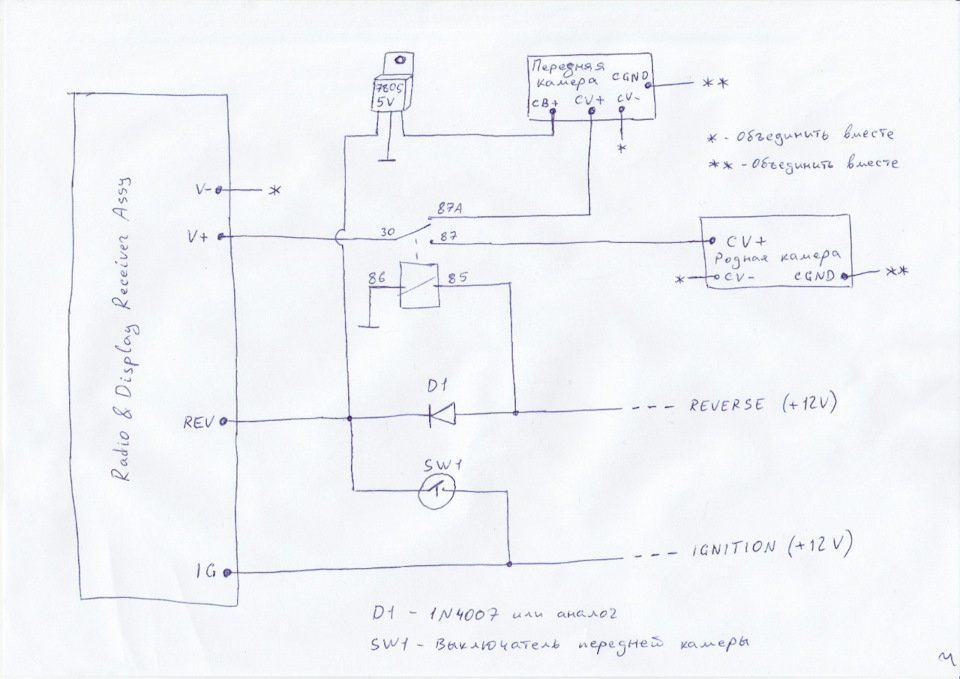 7805
5V
Передняя
камера
CGND
**
CB+
CV+
CV-
*
* - Объединить вместе
** - Объединить вместе
V-
*
V+
30
87A
87
CV+
Родная камера
*
CV-
CGND
**
86
85
Radio & Display Receiver Assy
D1
REV
REVERSE (+12V)
SW1
IG
IGNITION (+12V)
D1 - 1N4007 или аналог
SW1 - Выключатель передней камеры